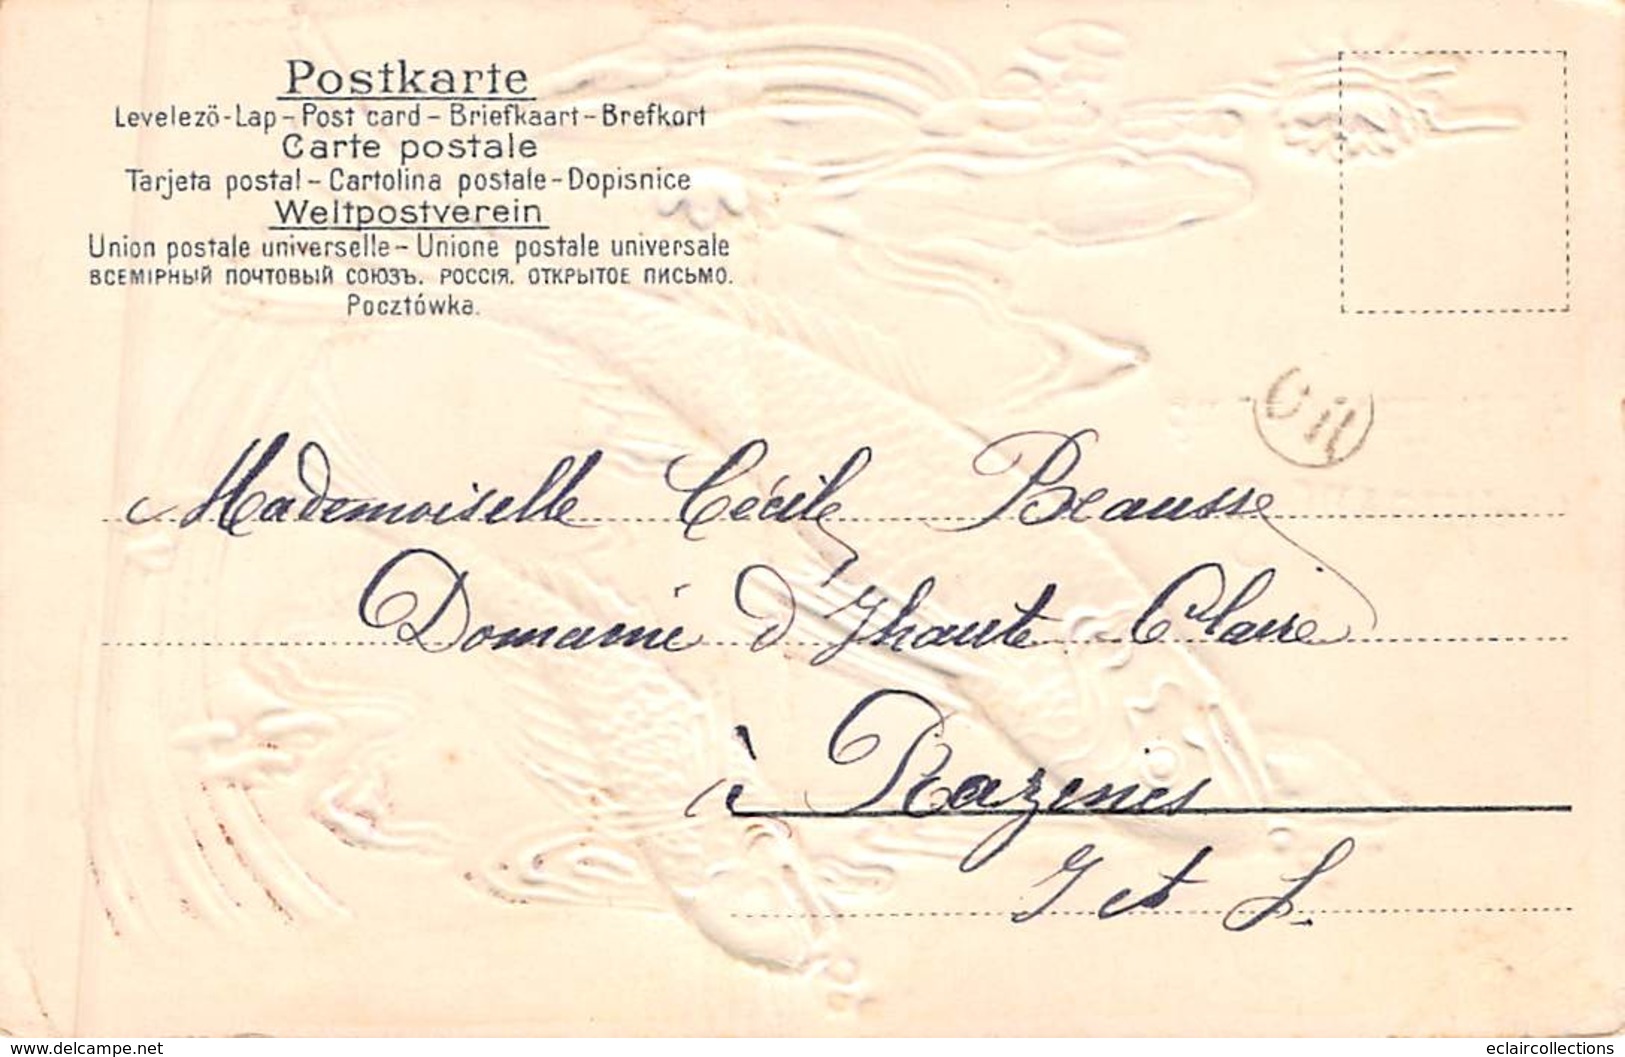 Postkarte
Levelezö-Lap – Post card – Briefkaart – Brefkort
Carte postale
Tarjeta postal – Cartolina postale – Dopisnice
Weltpostverein
Union postale universelle – Unione postale universale
ВСЕМІРНЫЙ ПОЧТОВЫЙ СОЮЗЪ. РОССІЯ. ОТКРЫТОЕ ПИСЬМО.
Pocztówka.
OR
Mademoiselle Cécile Beausse
Domaine d'haute Claire
à Razines
I et L
www.delcampe.net
eclaircollections